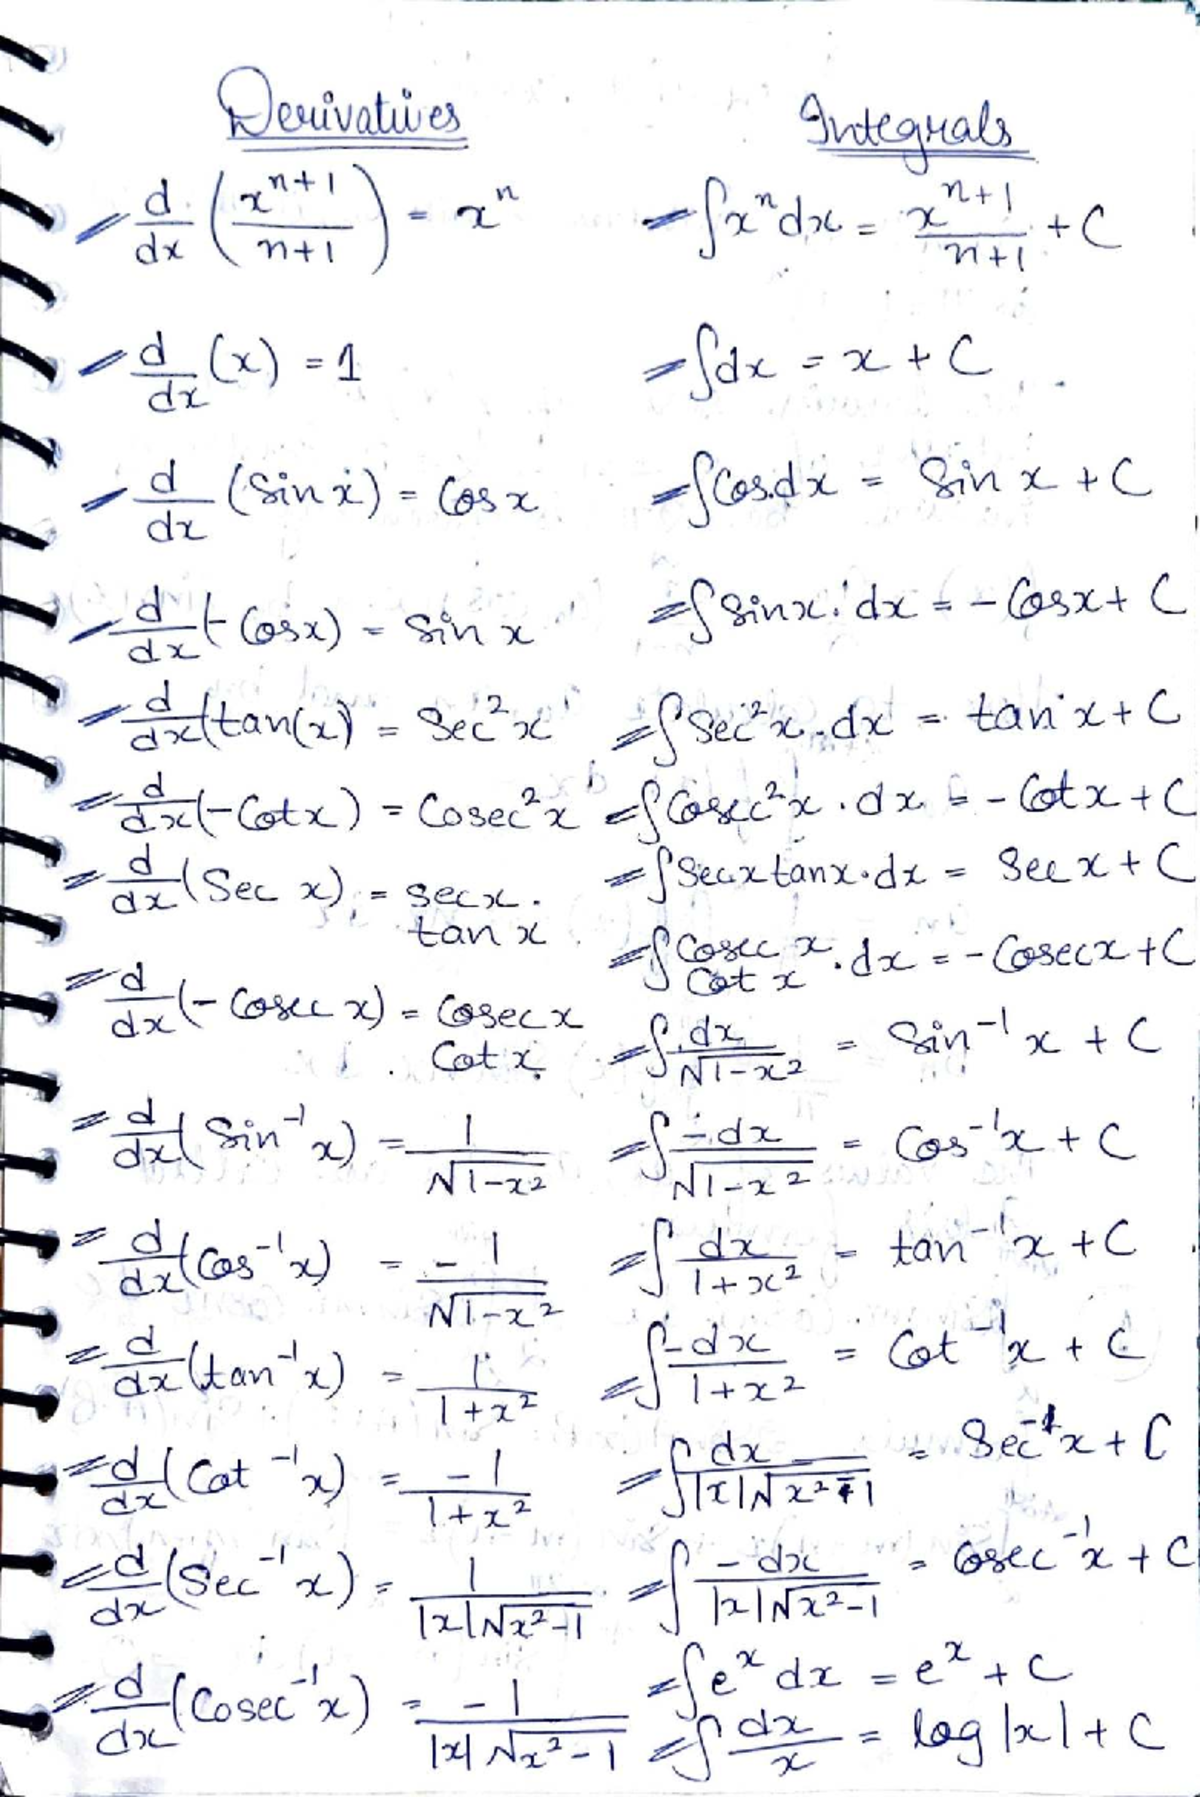 Derivatives
Integrals
d/dx (x^(n+1)/(n+1)) = x^n
∫x^n dx = x^(n+1)/(n+1) + C
d/dx (x) = 1
∫dx = x + C
d/dx (Sin x) = Cos x
∫Cos.dx = Sin x + C
d/dx (-Cosx) = Sin x
∫Sinx. dx = -Cosx + C
d/dx (tan(x) = Sec²x
∫Sec²x.dx = tan x + C
d/dx (-Cotx) = Cosec²x
∫Cosec²x.dx = -Cotx + C
d/dx (Sec x) = secx.
tan x
∫Secxtanx.dx = Sec x + C
∫Cosec x Cot x .dx = -Cosecx + C
d/dx (-Cosec x) = Cosec x
Cot x
∫dx/√(1-x²) = Sin⁻¹x + C
d/dx (Sin⁻¹x) = 1/√(1-x²)
∫-dx/√(1-x²) = Cos⁻¹x + C
d/dx (Cos⁻¹x) = -1/√(1-x²)
∫dx/(1+x²) = tan⁻¹x + C
d/dx (tan⁻¹x) = 1/(1+x²)
∫-dx/(1+x²) = Cot⁻¹x + C
d/dx (Cot⁻¹x) = -1/(1+x²)
∫dx/(|x|√(x²-1)) = Sec⁻¹x + C
d/dx (Sec⁻¹x) = 1/(|x|√(x²-1))
∫-dx/(|x|√(x²-1)) = Cosec⁻¹x + C
d/dx (Cosec⁻¹x) = -1/(|x|√(x²-1))
∫e^x dx = e^x + C
∫dx/x = log|x| + C